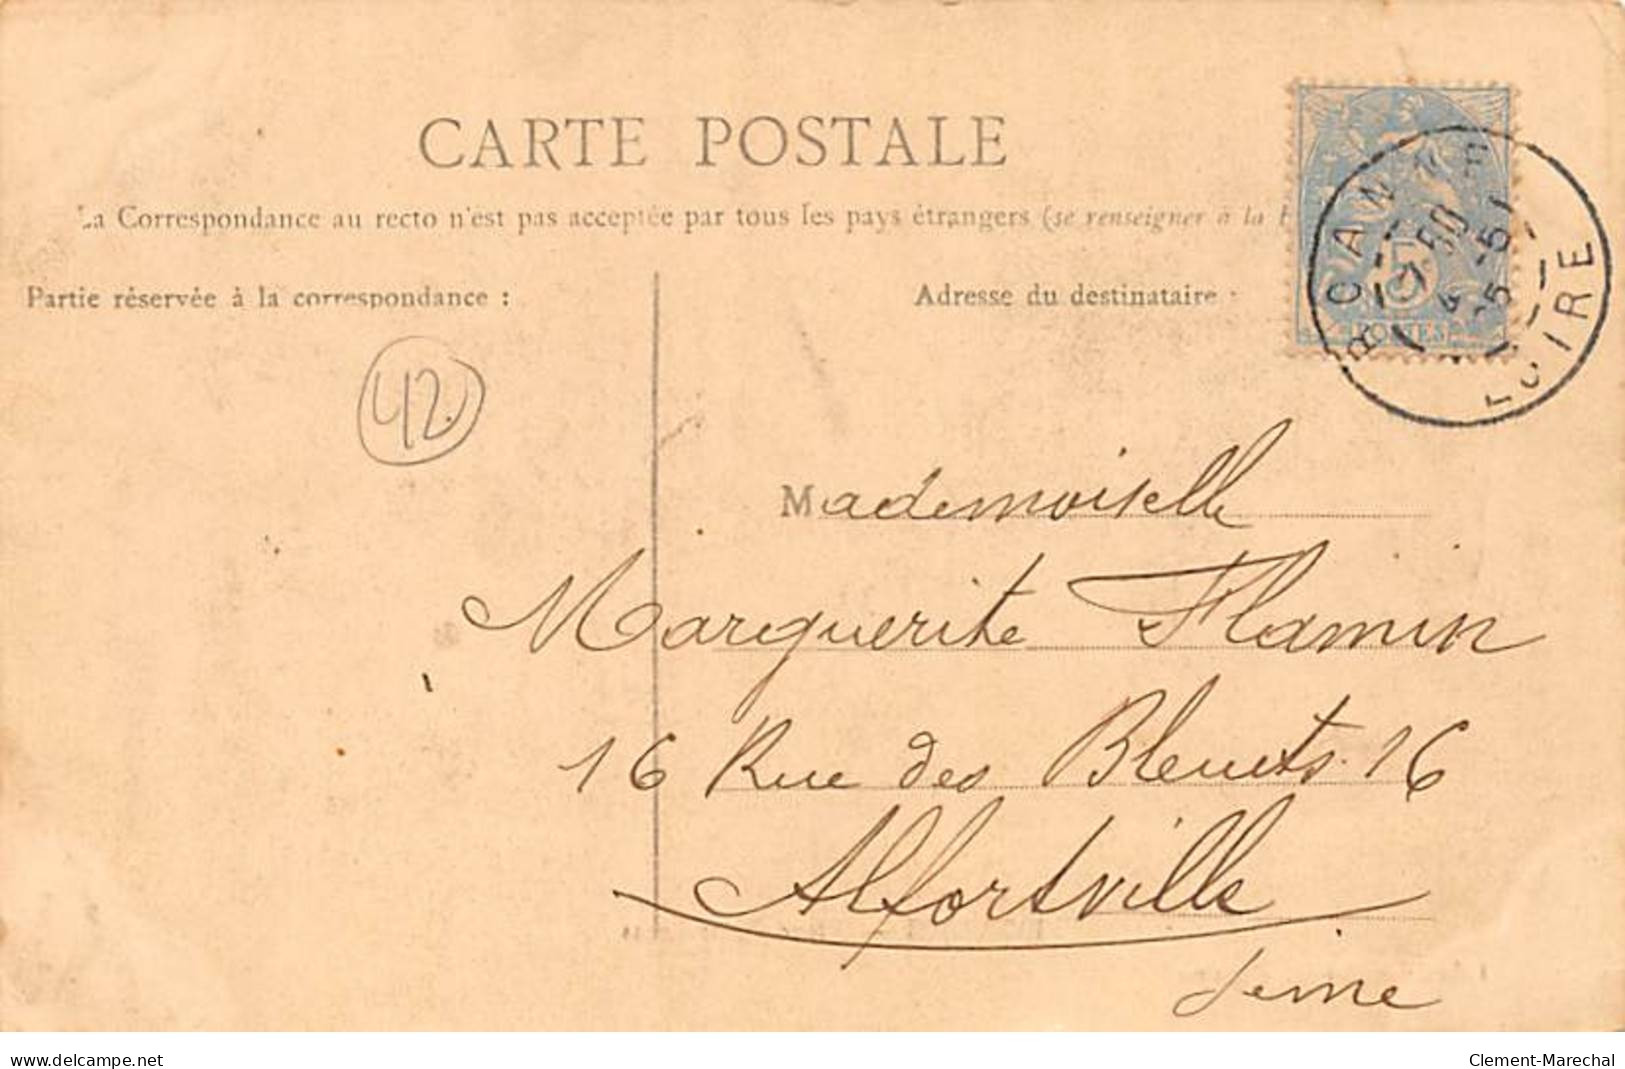 CARTE POSTALE
La Correspondance au recto n'est pas acceptée par tous les pays étrangers (se renseigner à la
Partie réservée à la correspondance :
Adresse du destinataire :
5
POSTES
LOIRE
42.
Mademoiselle
Marguerite Flamin
16 Rue des Bleuets. 16
Alfortville
Seine
www.delcampe.net
Clement-Marechal